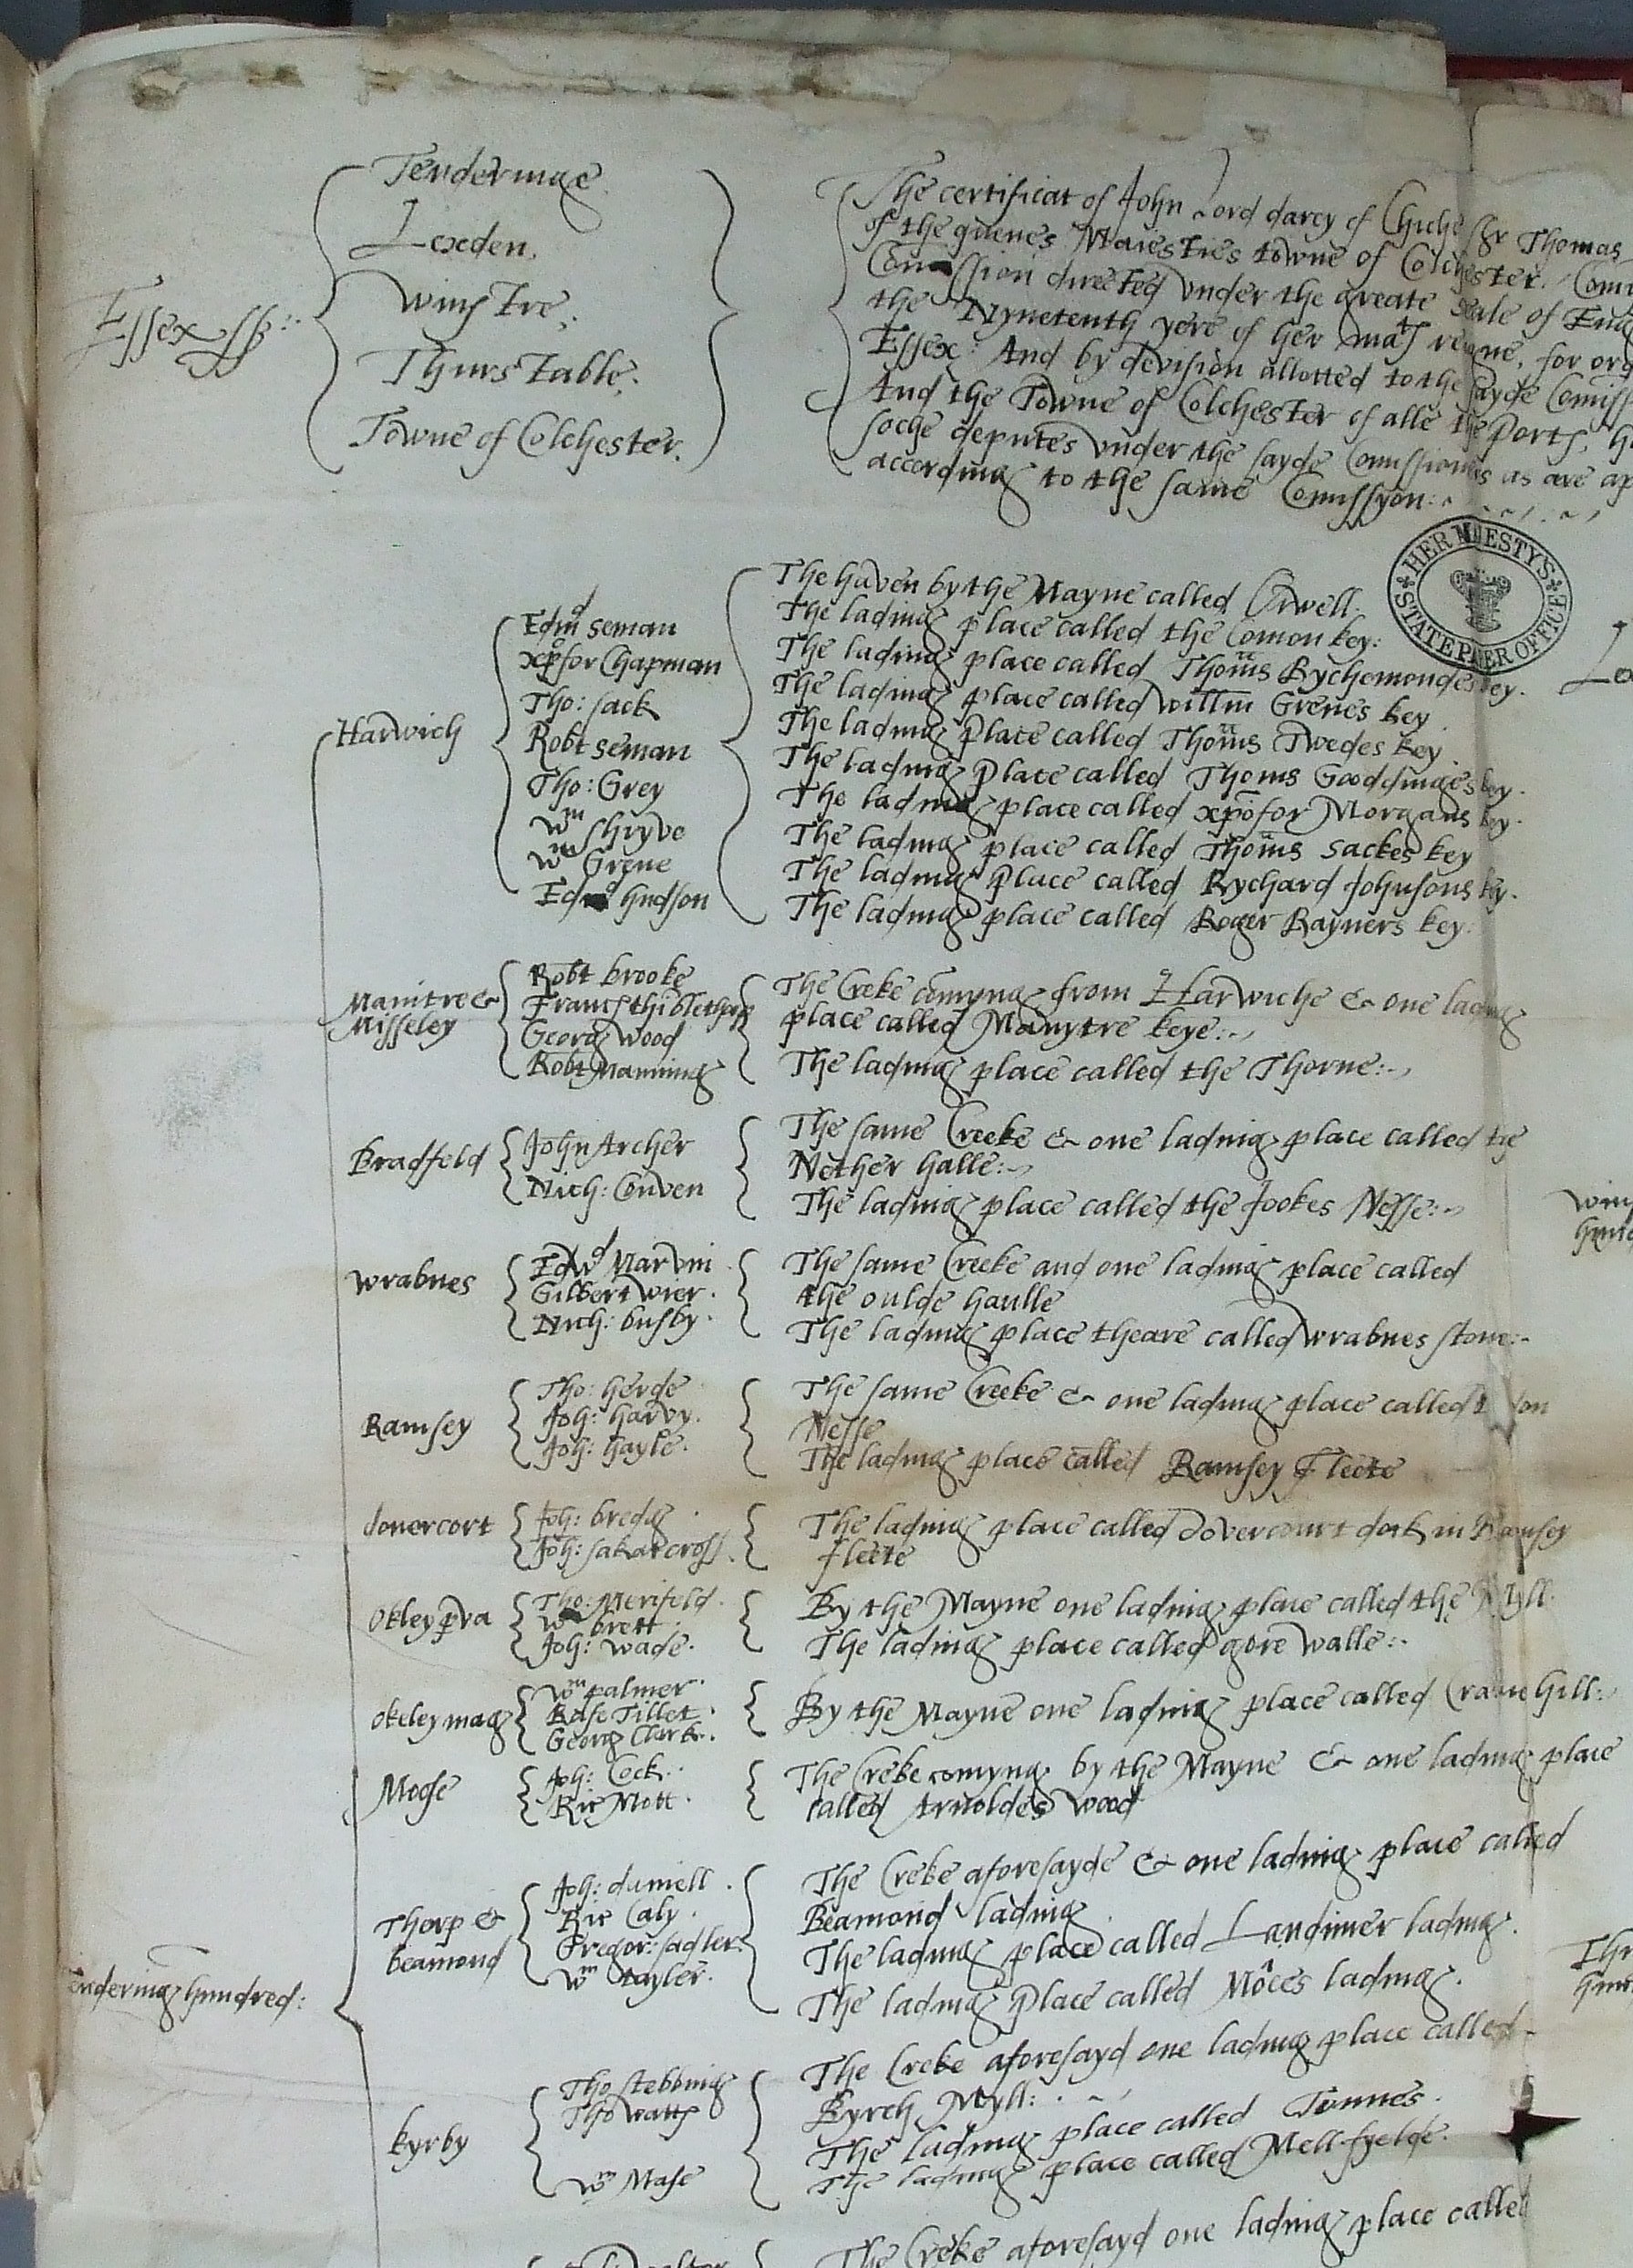 Essex ss:
Tenderinge
Lexden.
Winstre.
Thurstable.
Towne of Colchester.
The certificat of John Lord darcy of Chiche Sr Thomas
of the quenes Maiesties towne of Colchester. Com
Comission directed vnder the greate Seale of Eng
the Nynetenth yere of her mats reigne, for ord
Essex: And by devision allotted to the sayde Comiss
And the Towne of Colchester of alle the Ports, h
soche deputes vnder the sayde Comissioners as are ap
according to the same Comissyon:
HER MAJESTYS STATE PAPER OFFICE
Harwich
Edmd seman
xpofor Chapman
Tho: sack
Robt seman
Tho: Grey
Wm shryve
Wm Grene
Edmd hudson
The haven by the Mayne called Orwell.
The lading place called the Comon key:
The lading place called Thoms Rychemondes key.
The lading place called Willm Grenes key
The lading place called Thoms Twedes key
The lading place called Thoms Gooddinges key.
The lading place called xpofor Morgans key.
The lading place called Thoms Sackes key
The lading place called Rychard Johnsons key.
The lading place called Roger Rayners key:
Manitre &
Misseley
Robt brooke
Georg Wood
Robt Manning
The Creke comyng from Harwiche & one lading
place called Manytre keye:
The lading place called the Thorne:
Bradfeld
John Archer
Nich: Conven
The same Creeke & one lading place called the
Nether halle:
The lading place called the Jookes Nesse:
Wrabnes
Edwd Marvin
Gilbert Wier.
Nich: busby.
The same Creeke and one lading place called
the oulde haulle
The lading place theare called Wrabnes stone:
Ramsey
Tho: herde
Joh: harvy.
Joh: hayle.
The same Creeke & one lading place called
Nesse
The lading place called Ramsey fleete
dovercort
Joh: bredg
Joh: sakarcross.
The lading place called dovercourt dock in Ramsey
fleete
Okley pva
Tho: Merifeld.
Wm brett
Joh: wade.
By the Mayne one lading place called the Myll.
The lading place called gore walle:
Okeley mag
Wm palmer.
Rafe Tillet.
Georg Clark.
By the Mayne one lading place called Crane hill:
Mose
Joh: Cock.
Ric Mott.
The Creke comyng by the Mayne & one lading place
called Arnoldes wood
Thorp &
beamond
Joh: daniell.
Ric Caly.
Gregor: sadler.
Wm tayler.
The Creke aforesayde & one lading place called
Beamond lading.
The lading place called Landimer lading.
The lading place called Moces lading.
endering hundred:
kyrby
Tho stebbing
Tho watts
Wm Mase
The Creke aforesayd one lading place called
Byrch Myll:
The lading place called Tonnes.
The lading place called Mell-fyelde.
The Creke aforesayd one lading place called